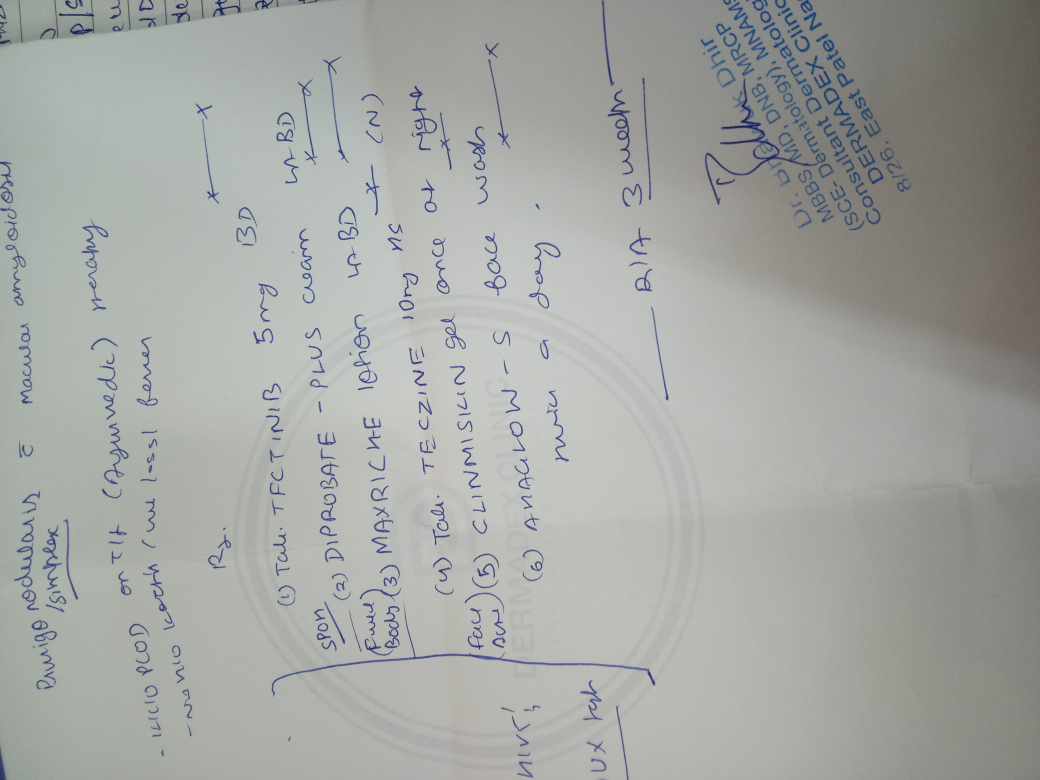 Prurigo nodularis c̄ macular amyloidosis
/simplex
- K/C/O PCOD on T/t (Ayurvedic) therapy
- No h/o
Rx.
(1) Tab. TFCTINIB 5mg BD
spots (2) DIPROBATE - PLUS cream LA BD
(Full Body) (3) MAXRICHE lotion LA BD
(4) Tab. TECZINE 10mg HS (N)
(face) (5) CLINMISKIN gel once at night
(6) AHAGLOW - S face wash
twice a day.
R/A 3 weeks
HIV
UX
Dhir
MBBS, MD, DNB, MRCP
(SCE- Dermatology), MNAMS
Consultant Dermatolog
DERMADEX Clinic
8/26, East Patel Na
DERMADEX CLINIC